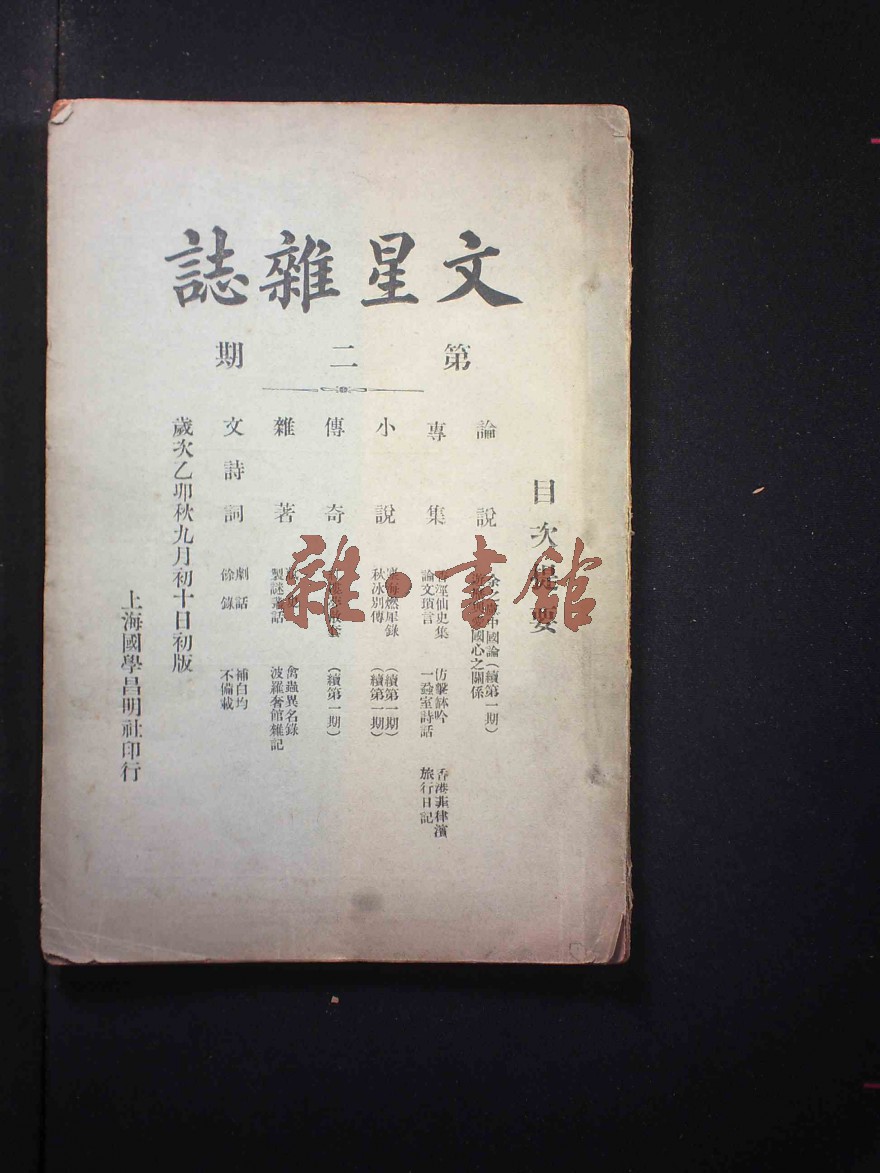 文星雜誌
第二期
目次提要
論說
余之中國論（續第一期）
國心之關係
專集
涇仙史集
仿擊鉢吟
香港菲律濱
論文瑣言
一蝨室詩話
旅行日記
小說
海燃犀錄
（續第一期）
秋冰別傳
（續第一期）
傳奇
（續第一期）
雜著
禽蟲異名錄
製謎叢話
波羅奢館雜記
文詩詞
劇話
補白均
餘錄
不備載
歲次乙卯秋九月初十日初版
上海國學昌明社印行
雜·書館